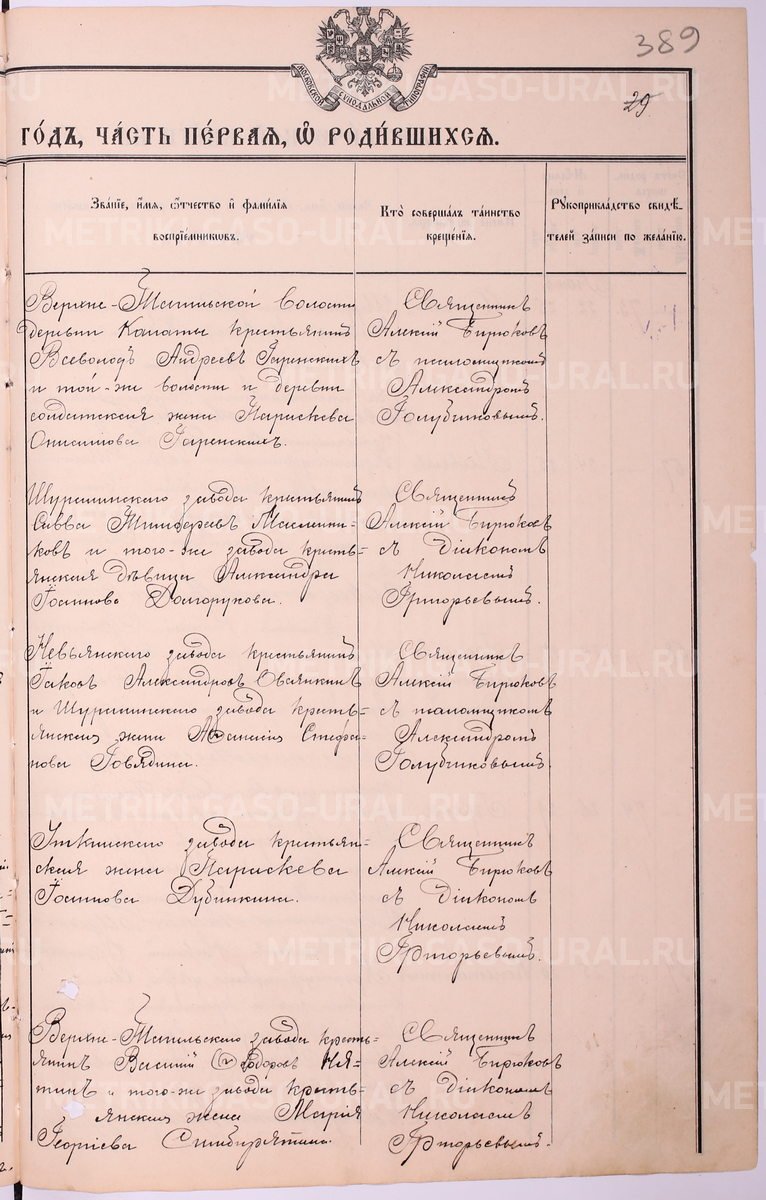 389
МОСКОВСКОЙ СѴНОДАЛЬНОЙ ТИПОГРАФІИ
29.
ГО́ДЪ, ЧА́СТЬ ПЕ́РВАЯ, Ѡ҆ РОДИ́ВШИХСЯ.
Зва́нїе, и҆́мя, ѻ҆́тчество и҆ фами́лїя
воспрїе́мникѡвъ.
Кто̀ соверша́лъ та́инство
креще́нїя.
Рꙋкоприкла́дство свидѣ́-
телей за́писи по жела́нїю.
Верхне-Тагильской волости
деревни Калаты крестьянинъ
Всеволодъ Андреевъ Гаренскихъ
и той-же волости и деревни
солдатская жена Параскева
Онисимова Гаренскихъ.
Священникъ
Алексій Бирюковъ
съ псаломщикомъ
Александромъ
Голубчиковымъ.
Шуралинского завода крестьянинъ
Савва Тимофеевъ Маслени-
ковъ и того-же завода кресть-
янская дѣвица Александра
Іоаннова Долгорукова.
Священникъ
Алексій Бирюковъ
съ Діакономъ
Николаемъ
Григорьевымъ.
Невьянского завода крестьянинъ
Іаковъ Александровъ Овсянкинъ
и Шуралинского завода кресть-
янская жена Афанасія Стефа-
нова Говядина.
Священникъ
Алексій Бирюковъ
съ псаломщикомъ
Александромъ
Голубчиковымъ.
Уткинского завода крестьян-
ская жена Параскева
Іоаннова Дубинкина.
Священникъ
Алексій Бирюковъ
съ Діакономъ
Николаемъ
Григорьевымъ.
Верхне-Тагильского завода кресть-
янинъ Василій Ѳеодоровъ
и того-же завода кресть-
янская жена Марія
Георгіева Симбирятина.
Священникъ
Алексій Бирюковъ
съ Діакономъ
Николаемъ
Григорьевымъ.
METRIKI.GASO-URAL.RU